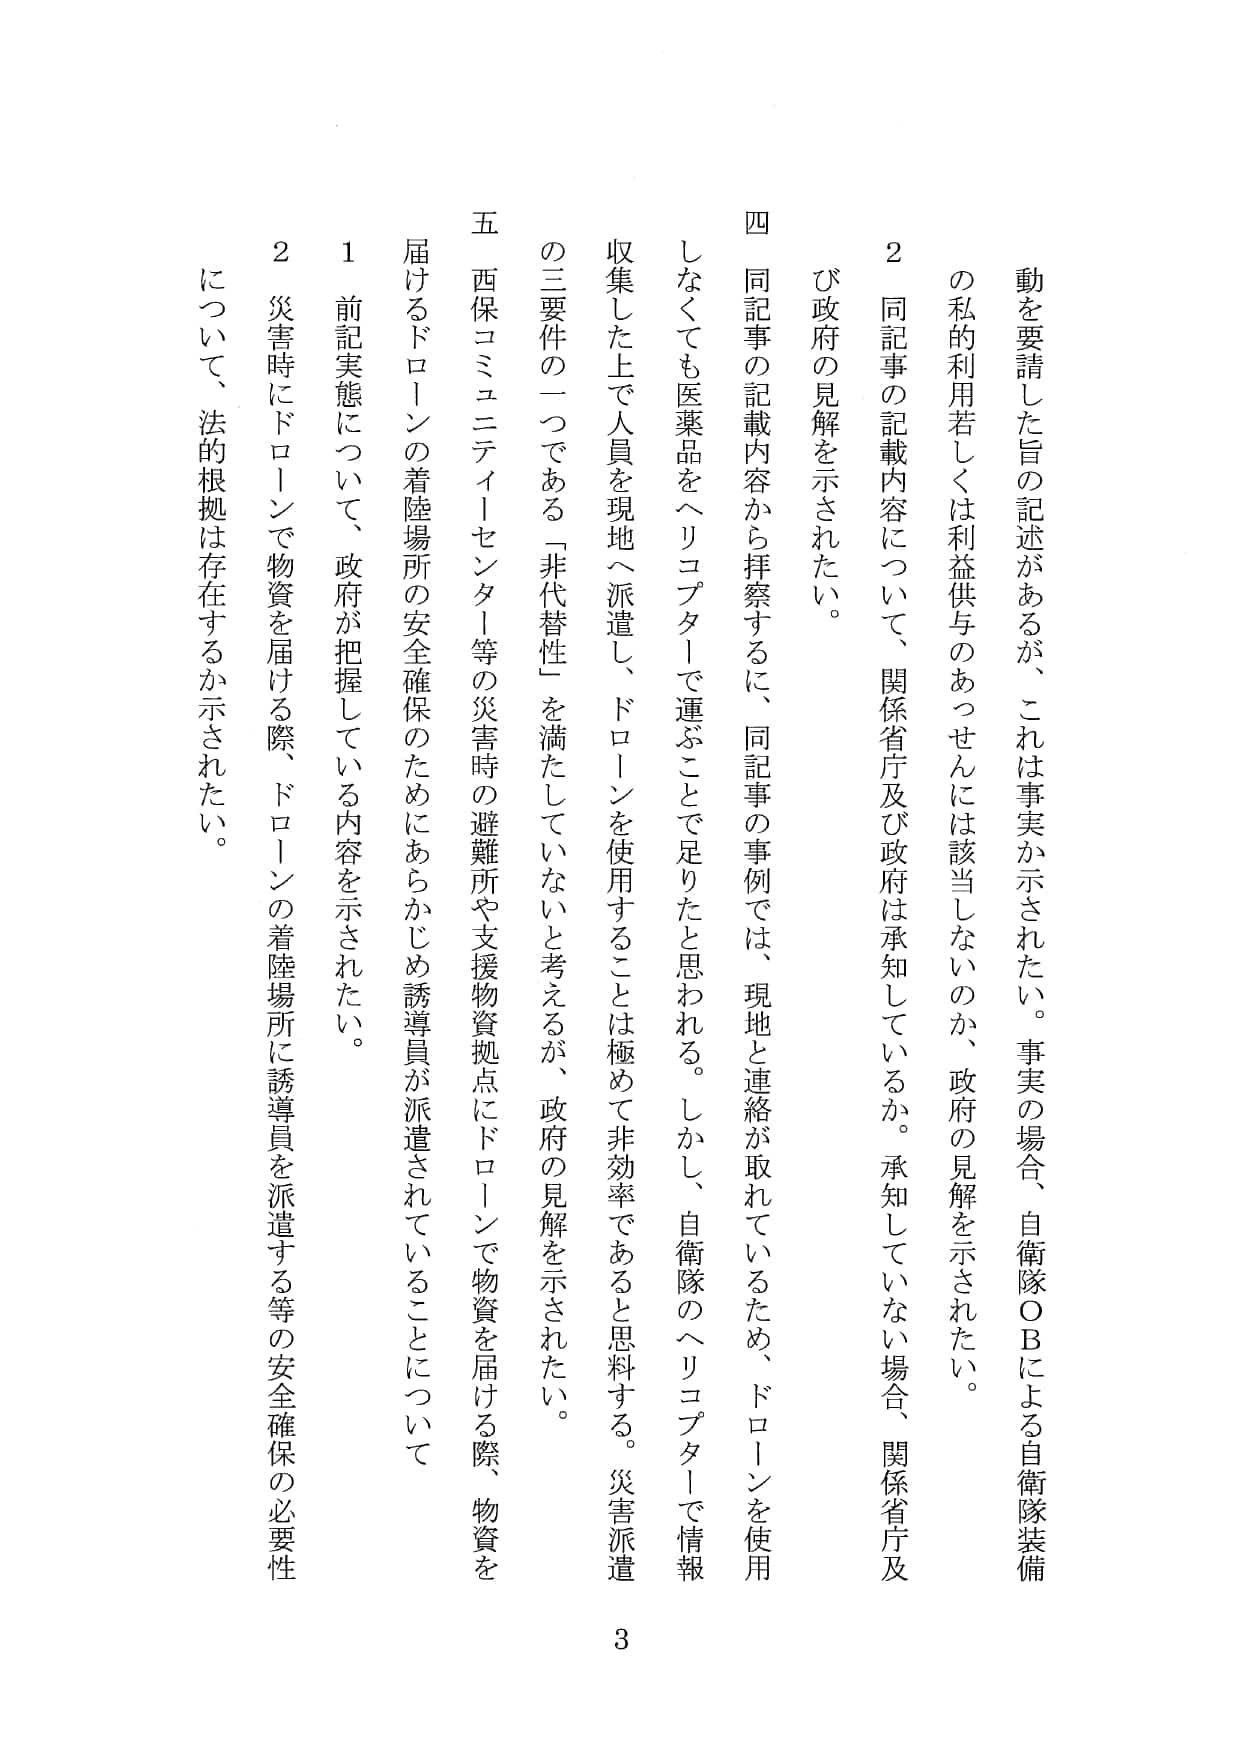 動を要請した旨の記述があるが、これは事実か示されたい。事実の場合、自衛隊ＯＢによる自衛隊装備
の私的利用若しくは利益供与のあっせんには該当しないのか、政府の見解を示されたい。
２　同記事の記載内容について、関係省庁及び政府は承知しているか。承知していない場合、関係省庁及
び政府の見解を示されたい。
四　同記事の記載内容から拝察するに、同記事の事例では、現地と連絡が取れているため、ドローンを使用
しなくても医薬品をヘリコプターで運ぶことで足りたと思われる。しかし、自衛隊のヘリコプターで情報
収集した上で人員を現地へ派遣し、ドローンを使用することは極めて非効率であると思料する。災害派遣
の三要件の一つである「非代替性」を満たしていないと考えるが、政府の見解を示されたい。
五　西保コミュニティーセンター等の災害時の避難所や支援物資拠点にドローンで物資を届ける際、物資を
届けるドローンの着陸場所の安全確保のためにあらかじめ誘導員が派遣されていることについて
１　前記実態について、政府が把握している内容を示されたい。
２　災害時にドローンで物資を届ける際、ドローンの着陸場所に誘導員を派遣する等の安全確保の必要性
について、法的根拠は存在するか示されたい。
3